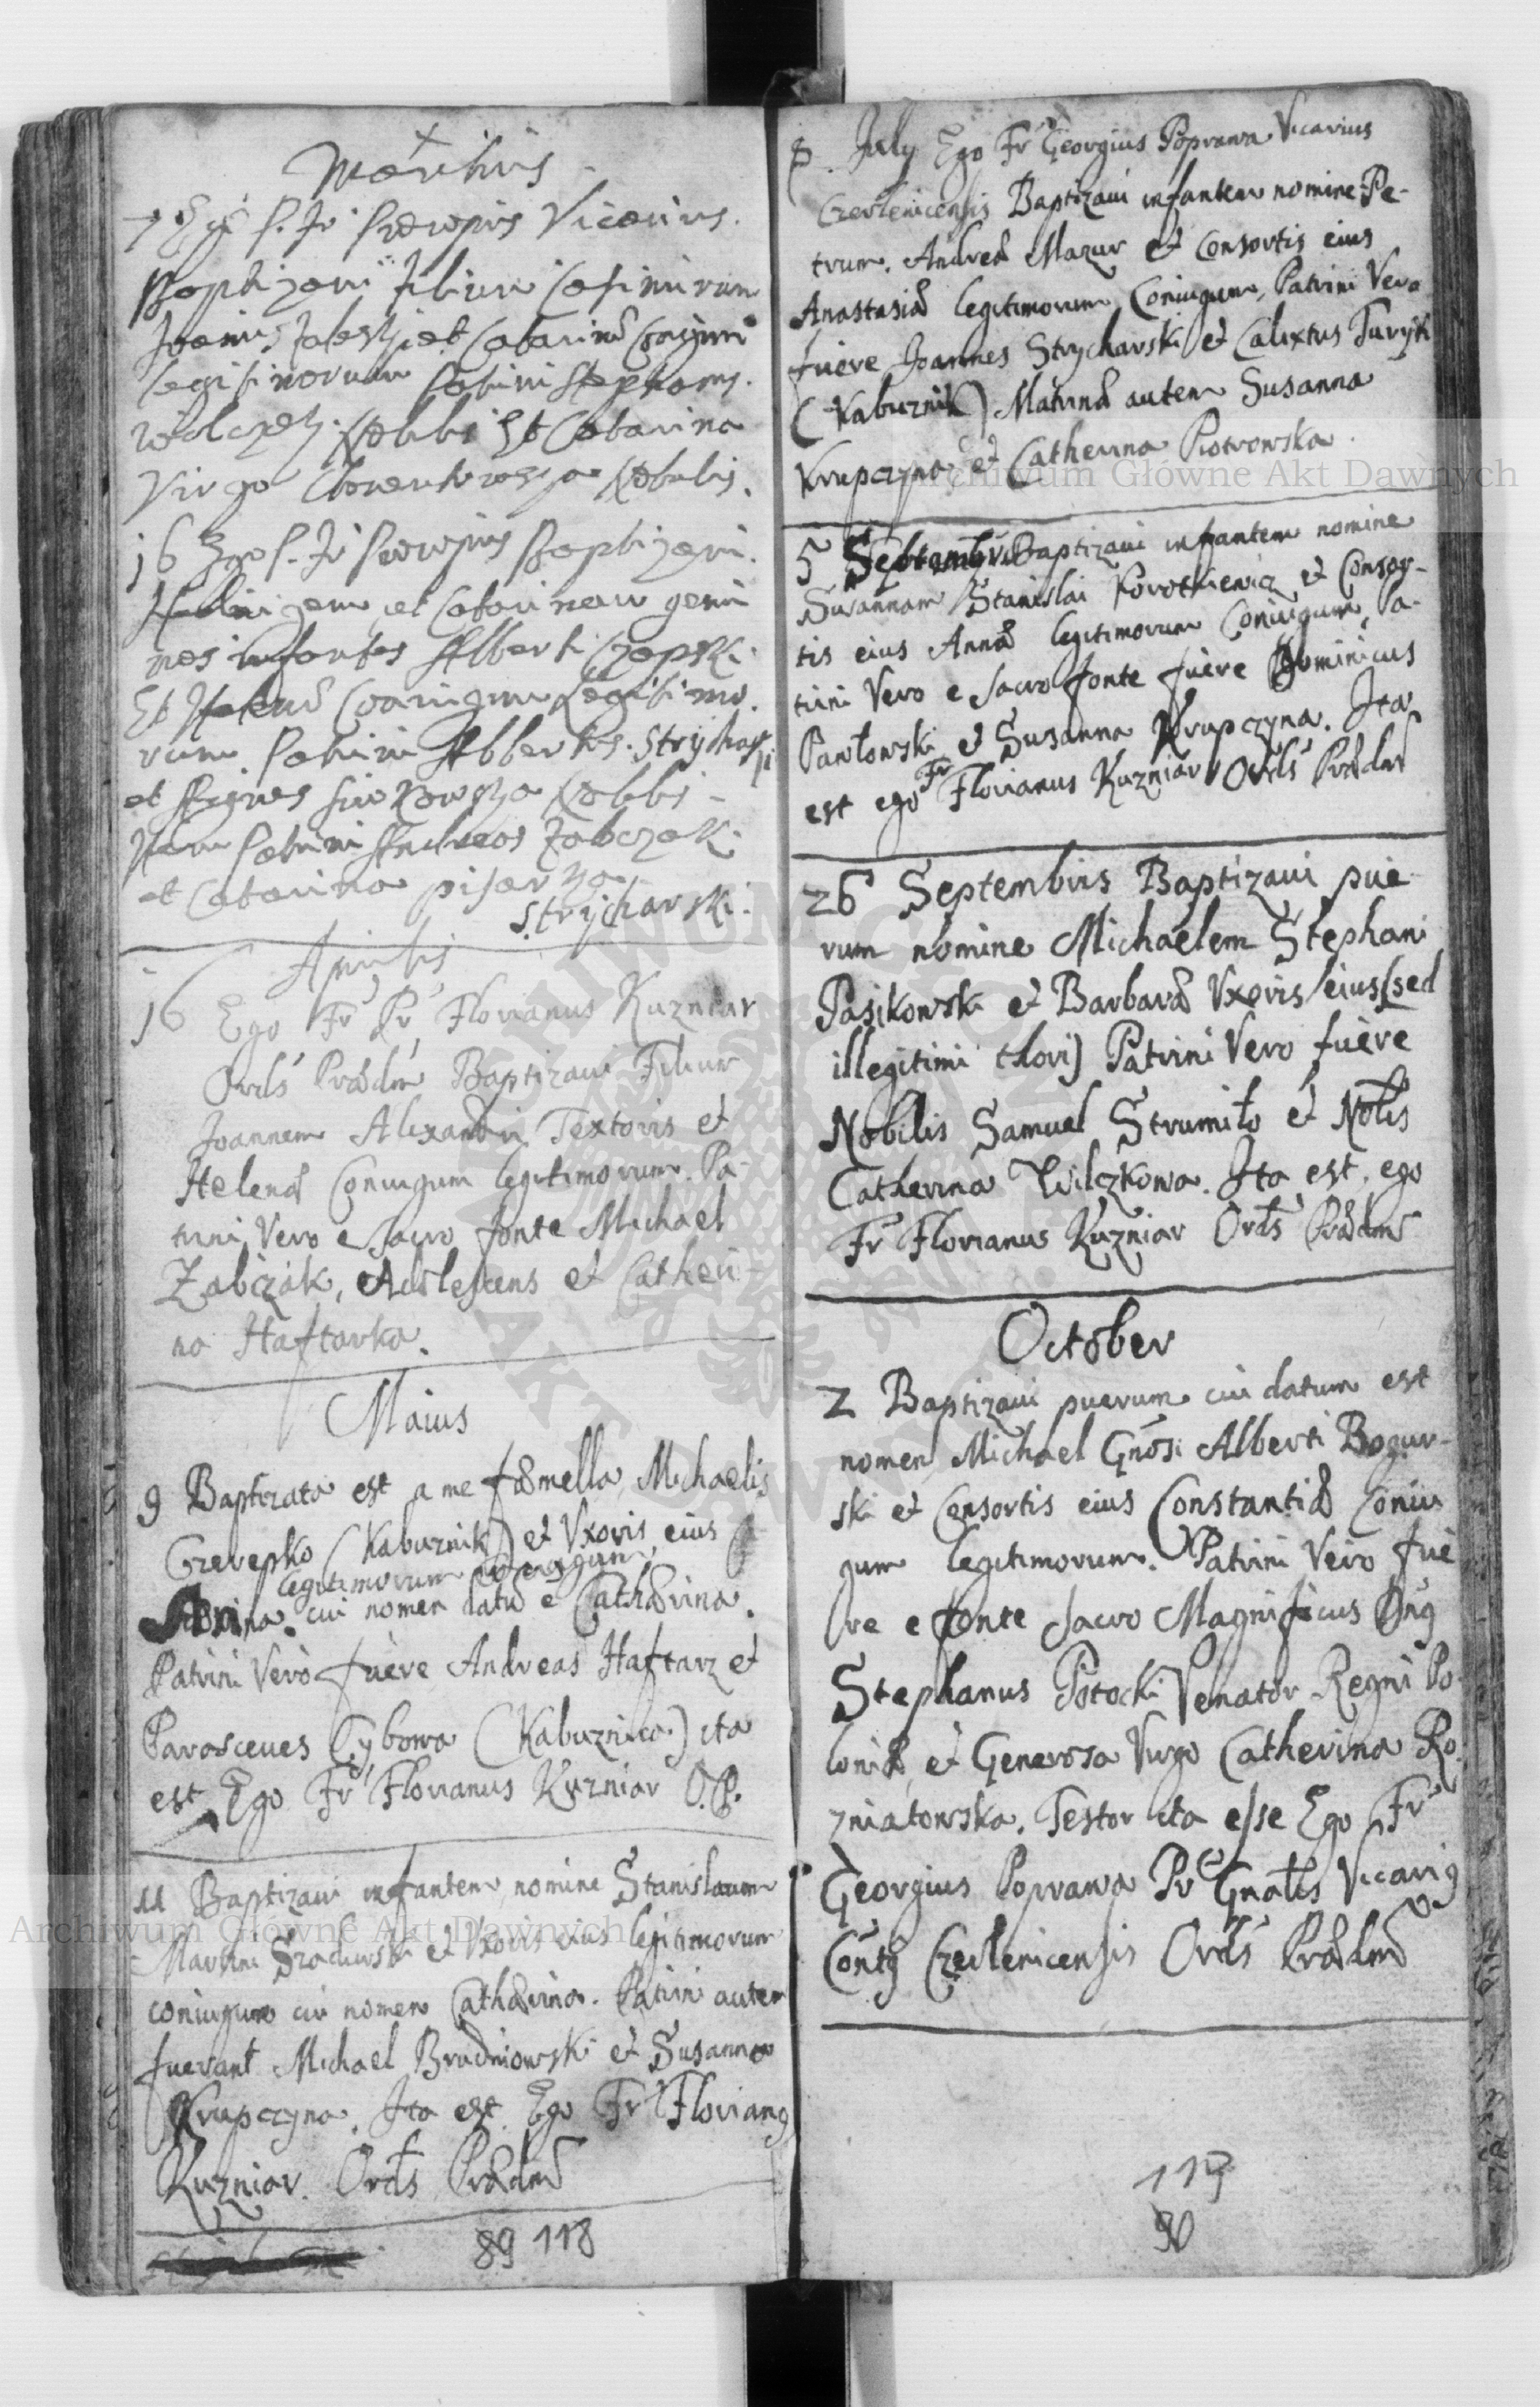 Martius
7 Ego P. Fr Vicarius.
Baptizavi Filium Casimirum
Joannis Zaleski et Catarinæ Coniun
legitimorum Patrini Stephanus
Wilczek Nobilis Et Catarina
Virgo Nobilis.
16 Ego P. Fr Baptizavi.
et Catarinam gemi
nos infantes Alberti Czapski
Et Helenæ Coniugum Legitimo
rum Patrini Albertus Strycharski
et Agnes Nobilis
Item Patrini Andreas Zabczak
et Catarina pisarka
Strycharski.
Aprilis
16 Ego Fr Pr Florianus Kuzniar
Ords Prædm Baptizavi Filium
Joannem Alexandri Textoris et
Helenæ Coniugum legitimorum. Pa-
trini Vero e sacro fonte Michael
Zabczak, Adolescens et Catheri-
na Haftarka.
Maius
9 Baptizata est a me fæmella Michaelis
Czerepko (Kabuznik) et Vxoris eius
legitimorum coniugum,
cui nomen datū e Cathærina.
Patrini Verò fuère Andreas Haftarz et
Parasceues Cybowa (Kabuznica) ita
est Ego Fr Florianus Kuzniar O.P.
11 Baptizavi infantem nomine Stanislaum
Martini et Vxoris eius legitimorum
coniugum cui nomen Cathærina. Patrini autem
fuerant Michael Brudniowski et Susanna
Krupczyna. Ita est Ego Fr Floriang
Kuzniar. Ords Prædm
89 118
8. July Ego Fr Georgius Poprawa Vicarius
Czerlenicensis Baptizavi infantem nomine Pe-
trum. Andreæ Mazur et Consortis eius
Anastasiæ legitimorum Coniugum, Patrini Vero
fuère Joannes Strycharski et Calixtus Turyk
(Kabuznik) Matrinæ autem Susanna
Krupczyna et Catherina Piotrowska.
5 Septembris Baptizavi infantem nomine
Susannam Stanislai Korotkiewicz et Consor-
tis eius Annæ legitimorum Coniugum, Pa-
trini Vero e Sacro fonte fuère Dominicus
Pawlowski et Susanna Krupczyna. Ita
est ego Fr Florianus Kuzniar Ords Prædm
26 Septembris Baptizavi pue-
rum nomine Michaëlem Stephani
Pasikowski et Barbaræ Vxoris eius (sed
illegitimi thori) Patrini Vero fuère
Nobilis Samuel Strumiło et Noblis
Catherina Wilczkowa. Ita est. ego
Fr Florianus Kuzniar Ords Prædm
October
2 Baptizavi puerum cui datum est
nomen Michael Gnosi Alberti Bogur-
ski et Consortis eius Constantiæ Coniu
gum legitimorum. Patrini Vero fuè
re e fonte sacro Magnificus Dng
Stephanus Potocki Venator Regni Po
loniæ, et Generosa Virgo Catherina Ro
zniatowska. Testor ita esse Ego Fr
Georgius Poprawa Pr Gnalis Vicarig
Contg Czerlenicensis Ords Prædm
119
90
Archiwum Główne Akt Dawnych
Archiwum Główne Akt Dawnych